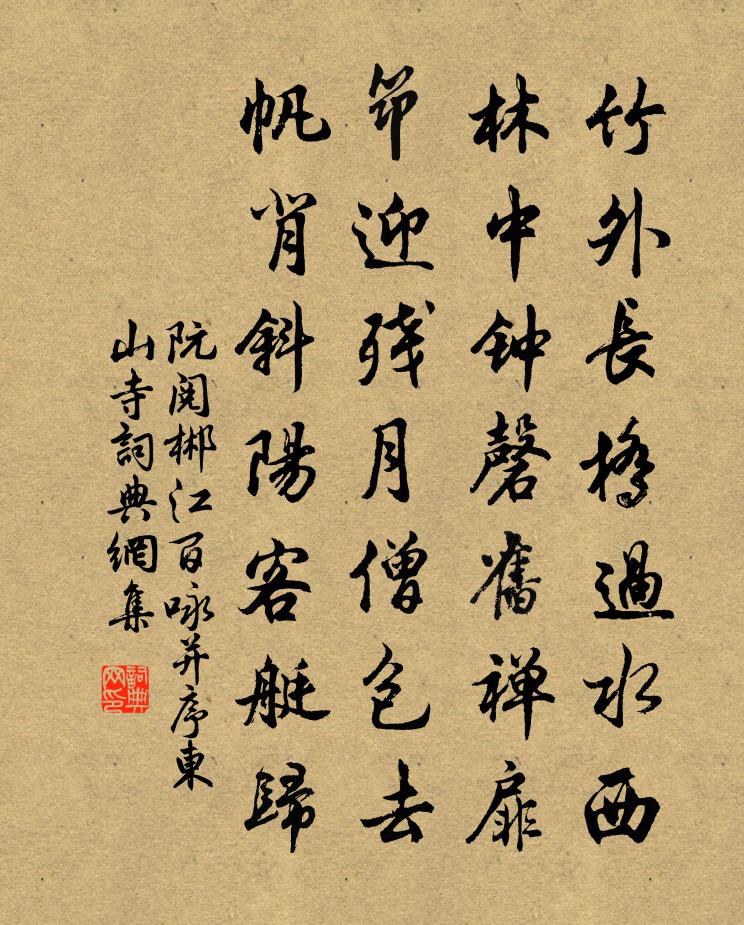 竹外長橋過水西
林中钟磬舊禅扉
筇迎残月僧包去
帆背斜陽客艇歸
阮阅郴江百咏并序東
山寺詞典網集
詞典
网印